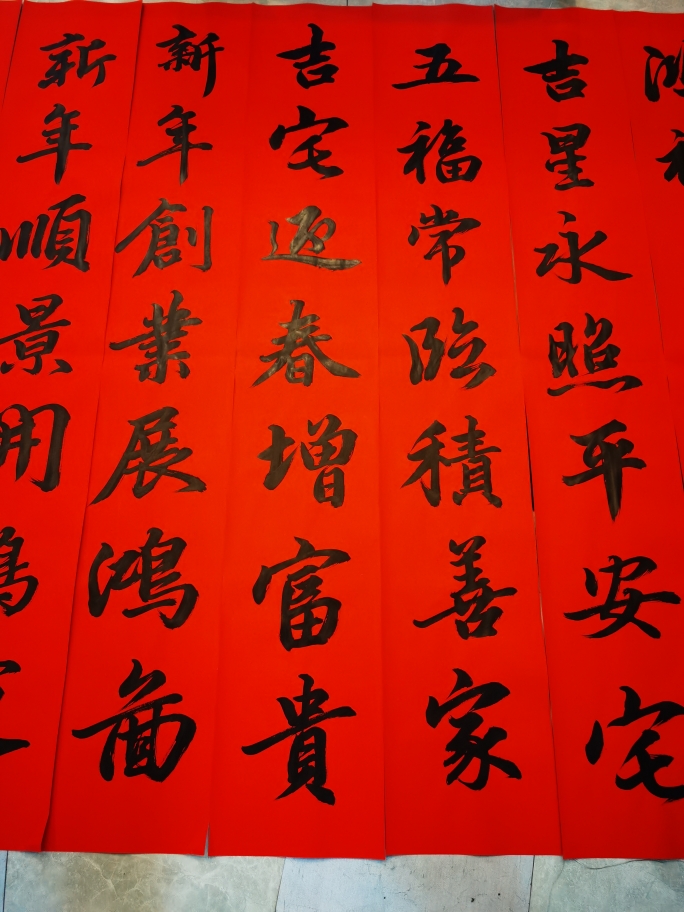 吉星永照平安宅
五福常臨積善家
吉宅迎春增富貴
新年創業展鴻圖
新年順景開